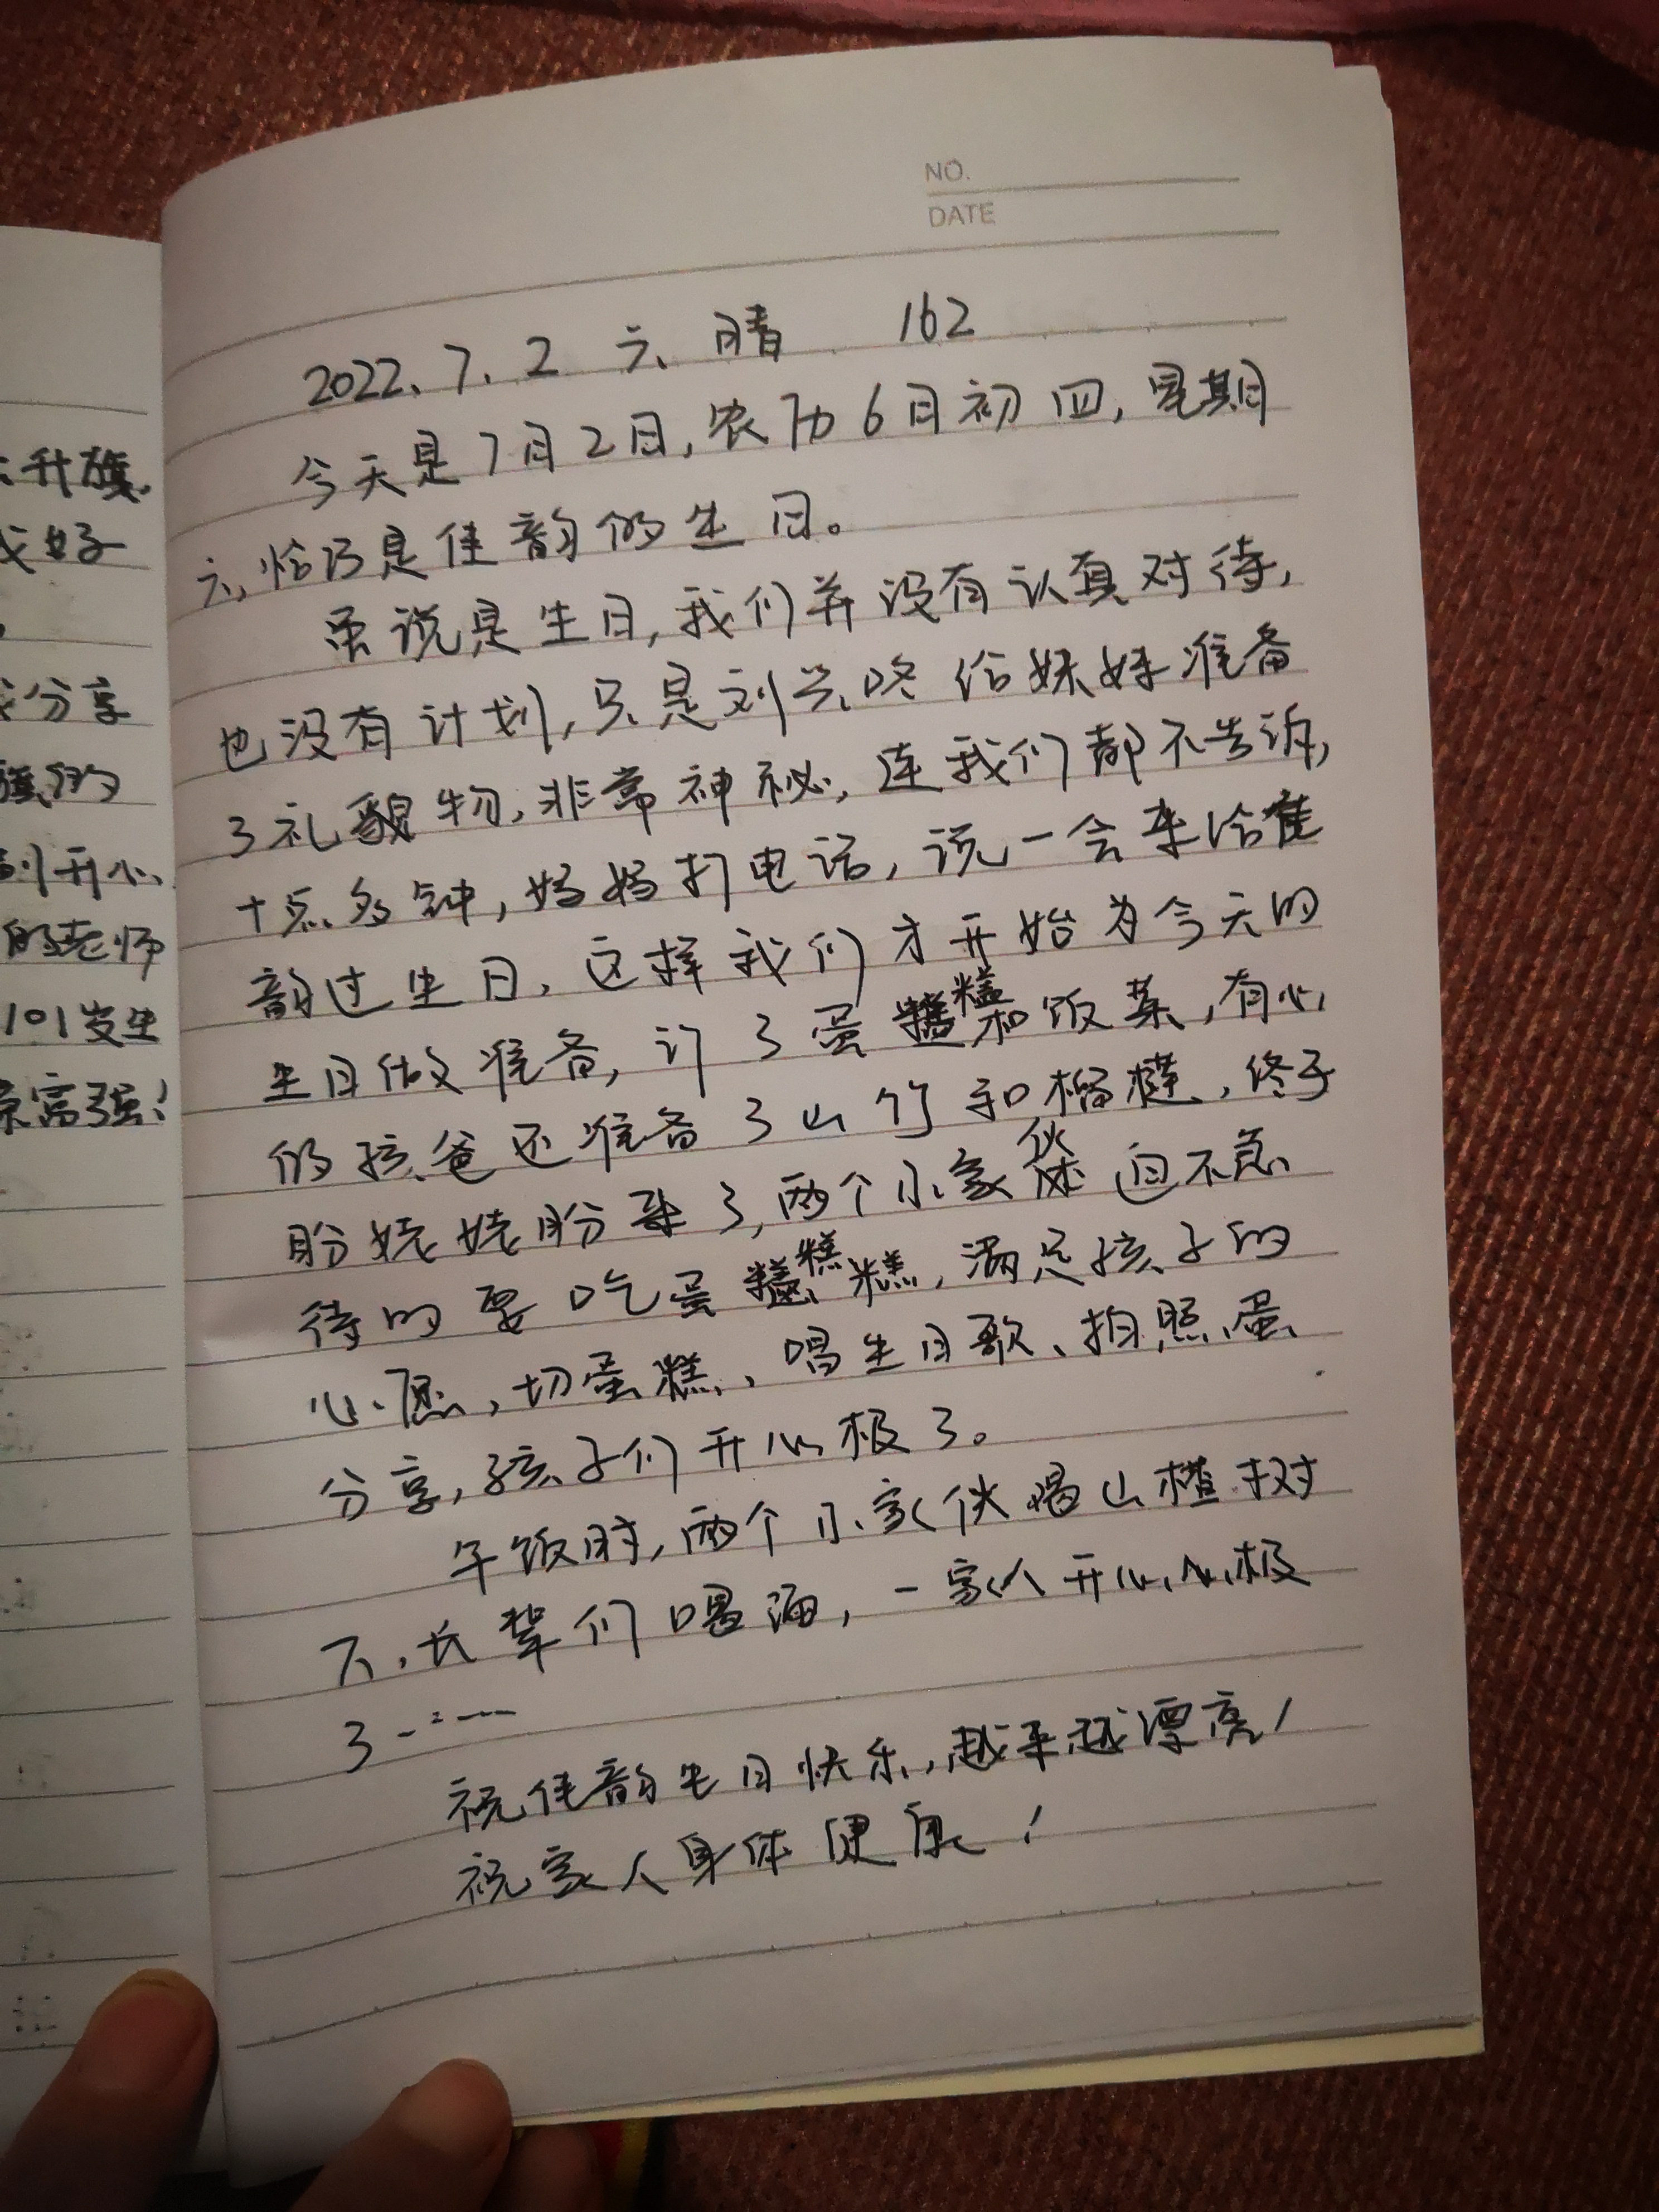 升旗
好
分享
开心
的老师
101发生
富强!
NO.
DATE
2022、7、2 六 晴 162
今天是7月2日,农历6月初四,星期
六,恰巧是佳韵的生日。
虽说是生日,我们并没有认真对待,
也没有计划,只是刘兴咚给妹妹准备
了礼物,非常神秘,连我们都不告诉,
十点多钟,妈妈打电话,说一会来给佳
韵过生日,这样我们才开始为今天的
生日做准备,订了蛋糕和饭菜,有心
的孩爸还准备了山竹和榴莲,终于
盼姥姥盼来了,两个小家伙迫不急
待的要吃蛋糕,满足孩子的
心愿,切蛋糕、唱生日歌、拍照、蛋
分享,孩子们开心极了。
午饭时,两个小家伙喝山楂树
下,长辈们喝酒,一家人开心极
了……
祝佳韵生日快乐,越来越漂亮!
祝家人身体健康!